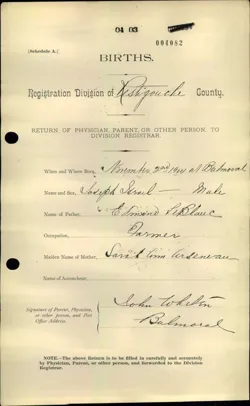 04 03
004082
[Schedule A.]
BIRTHS.
Registration Division of Restigouche County.
RETURN OF PHYSICIAN, PARENT, OR OTHER PERSON, TO
DIVISION REGISTRAR.
When and Where Born, November 2nd at Balmoral
Name and Sex, Joseph — Male
Name of Father, Edmond LeBlanc
Occupation, Farmer
Maiden Name of Mother, Sarah Arseneau
Name of Accoucheur,
Signature of Parent, Physician,
or other person, and Post
Office Address.
John
Balmoral
NOTE.—The above Return is to be filled in carefully and accurately
by Physician, Parent, or other person, and forwarded to the Division
Registrar.